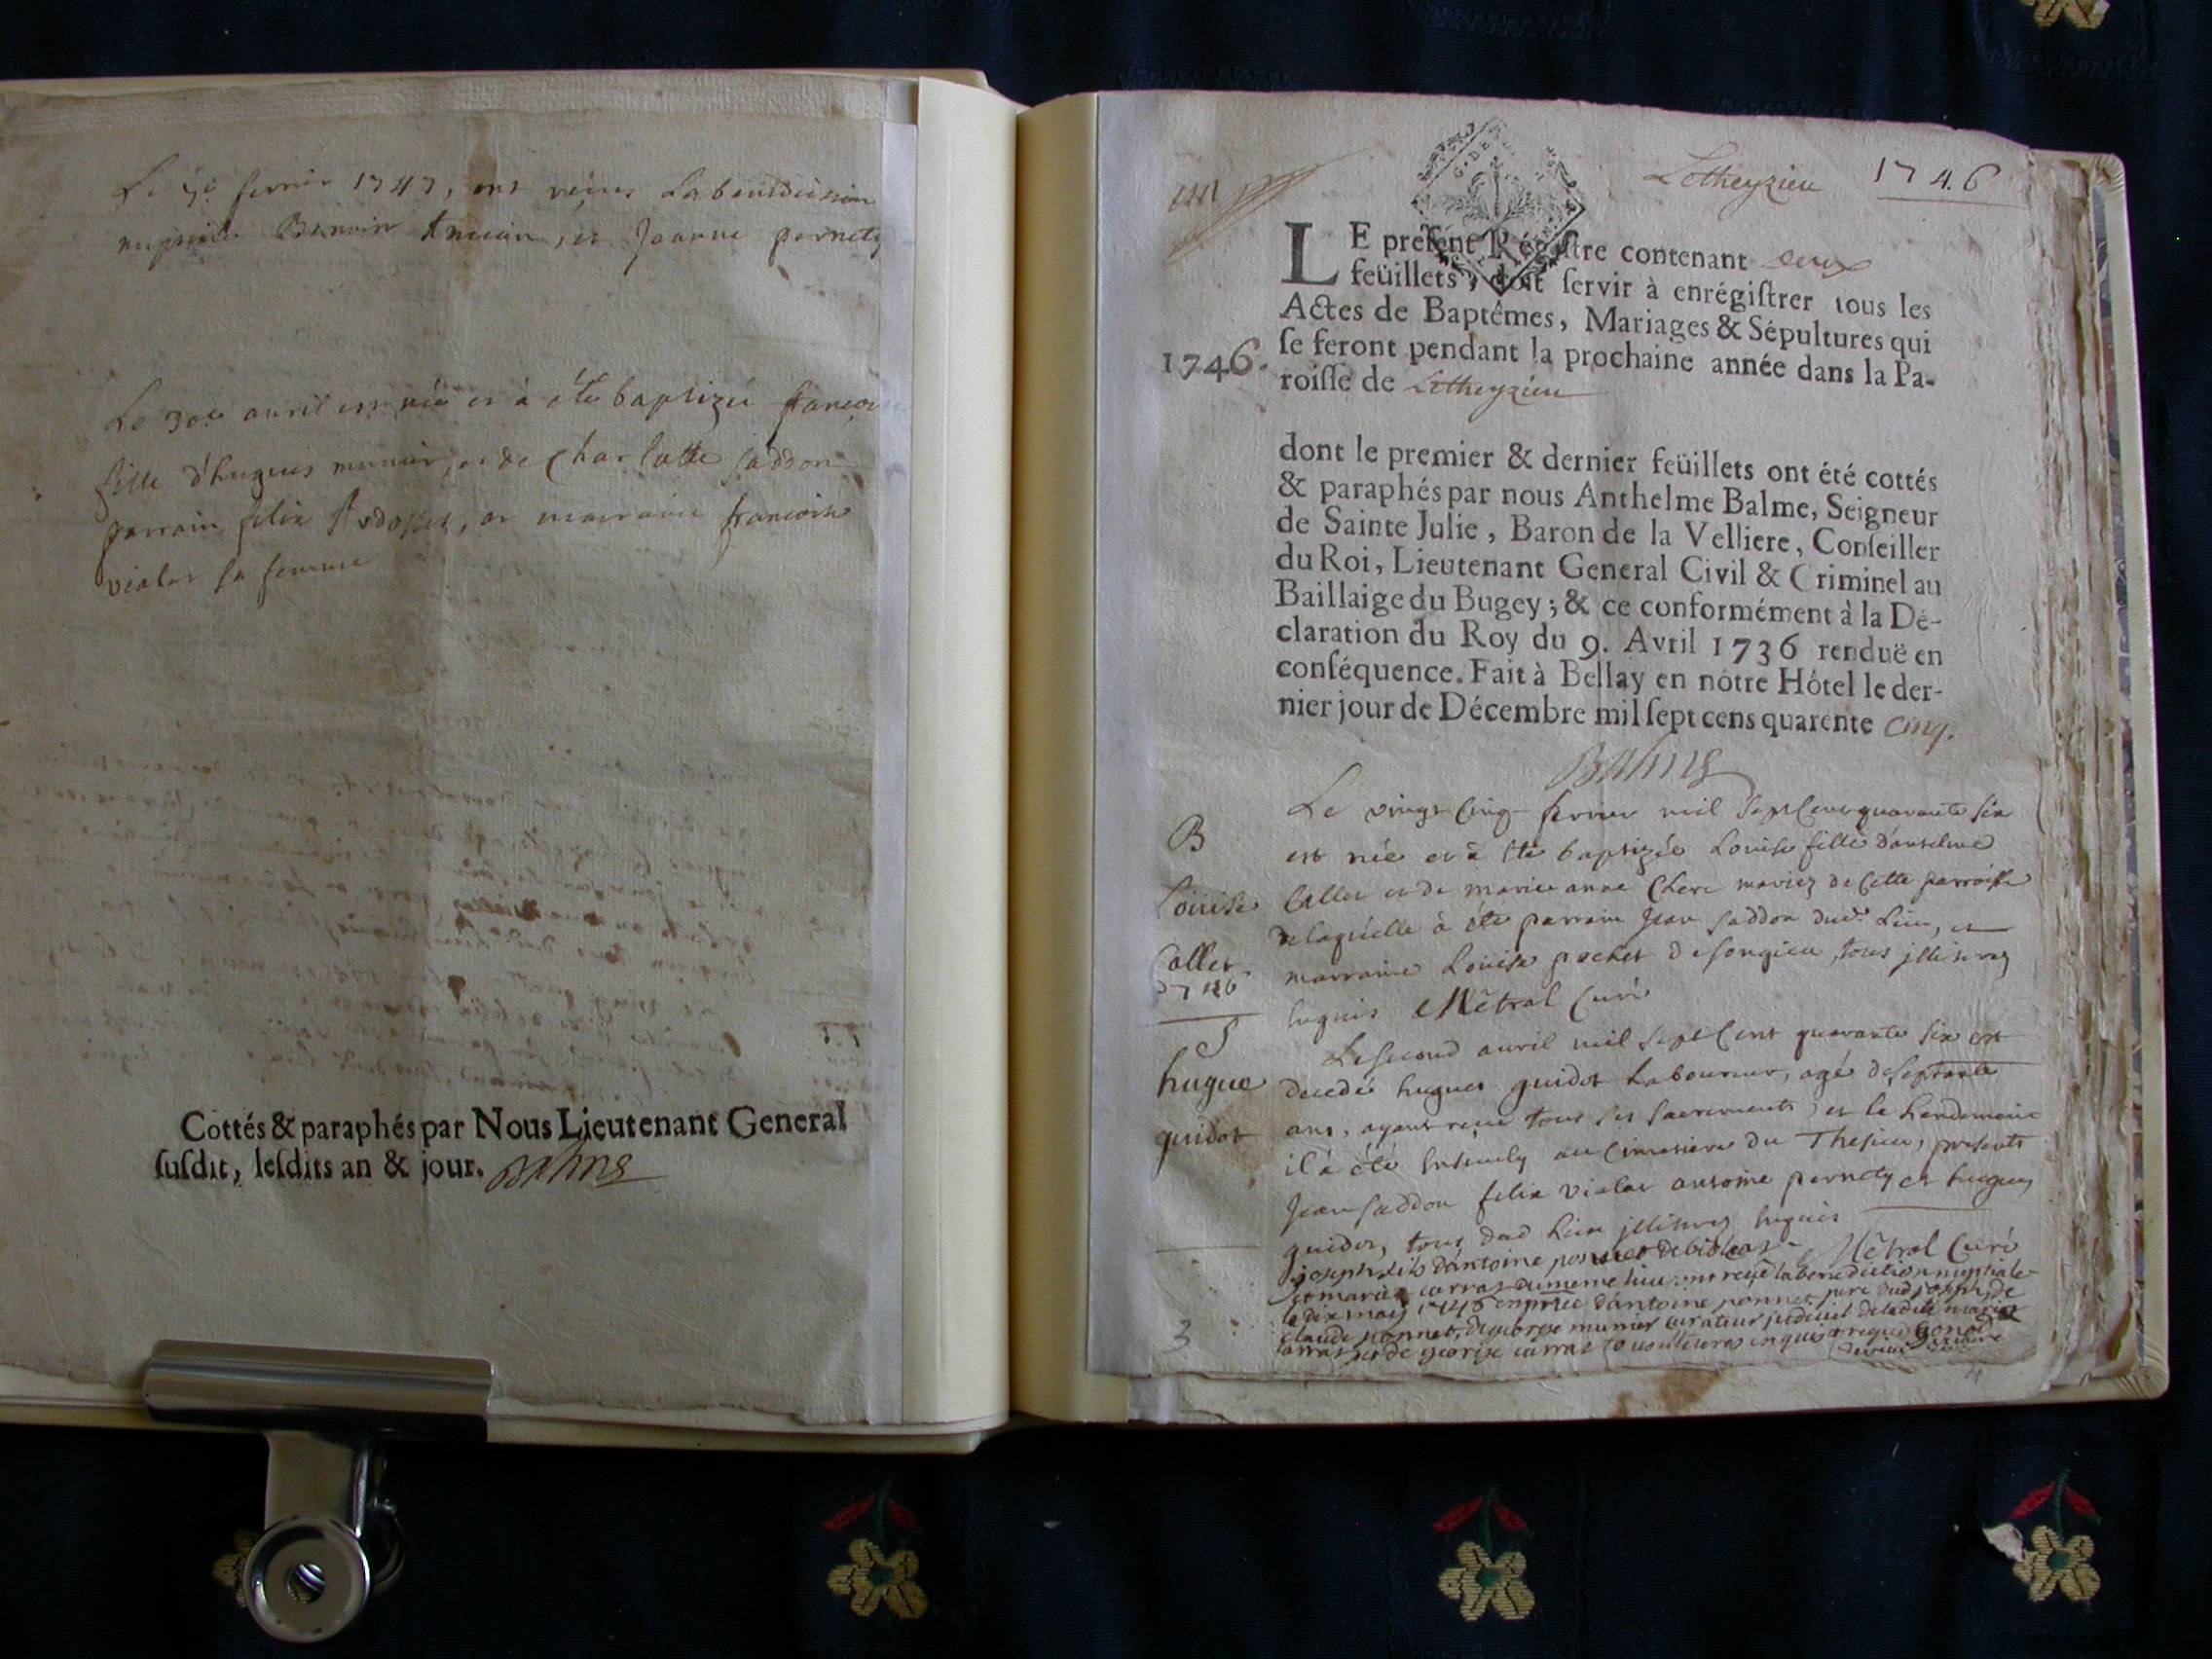 Le 7e fevrier 1747, ont reçus La benediction
nuptiale Benoit Ancian, et Jeanne pernety
Le 30e avril est née et à été baptizée françoise
fille d'hugues munier, et de Charlotte Jaddon
parrain felix, et marraine francoise
violet sa femme
Cottés & paraphés par Nous Lieutenant General
susdit, lesdits an & jour. Balme
Lotheyzieu 1746
LE present Régistre contenant deux
feüillets, doit servir à enrégistrer tous les
Actes de Baptêmes, Mariages & Sépultures qui
1746. se feront pendant la prochaine année dans la Pa-
roisse de Lotheyzieu
dont le premier & dernier feüillets ont été cottés
& paraphés par nous Anthelme Balme, Seigneur
de Sainte Julie, Baron de la Velliere, Conseiller
du Roi, Lieutenant General Civil & Criminel au
Baillaige du Bugey; & ce conformément à la Dé-
claration du Roy du 9. Avril 1736 renduë en
conséquence. Fait à Bellay en nôtre Hôtel le der-
nier jour de Décembre mil sept cens quarente cinq.
Balme
Le vingt Cinq fevrier mil sept Cent quarante six
B
est née et à été baptizée Louise fille d'anselme
Louise Callet et de marie anne Chere mariez de Cette parroisse
de laquelle à été parrain Jean Jaddon dud. Lieu, et
Callet marraine Louise pochet de songieu, tous illitirez
1746
Enquis Métral Curé
S
Le second avril mil sept Cent quarante six est
hugue decedé hugues guidot Laboureur, agé de septante
guidot ans, ayant reçu tous ses sacrements, et le Lendemain
il à été Ensevely au Cimetiere du Thesieu, presents
Jean Jaddon felix violet antoine pernety et hugues
guidot, tous dud Lieu illitirez Enquis Métral Curé
joseph fils d'antoine ponnet
et marie carraz du meme lieu ont reçu la benediction nuptiale
le dix may 1746 d'antoine ponnet pere dud joseph, de
claude ponnet, de george munier curateur judiciel de ladite marie
carraz et de george carraz tous illiteres enquis et requis Gonod
vicaire
3